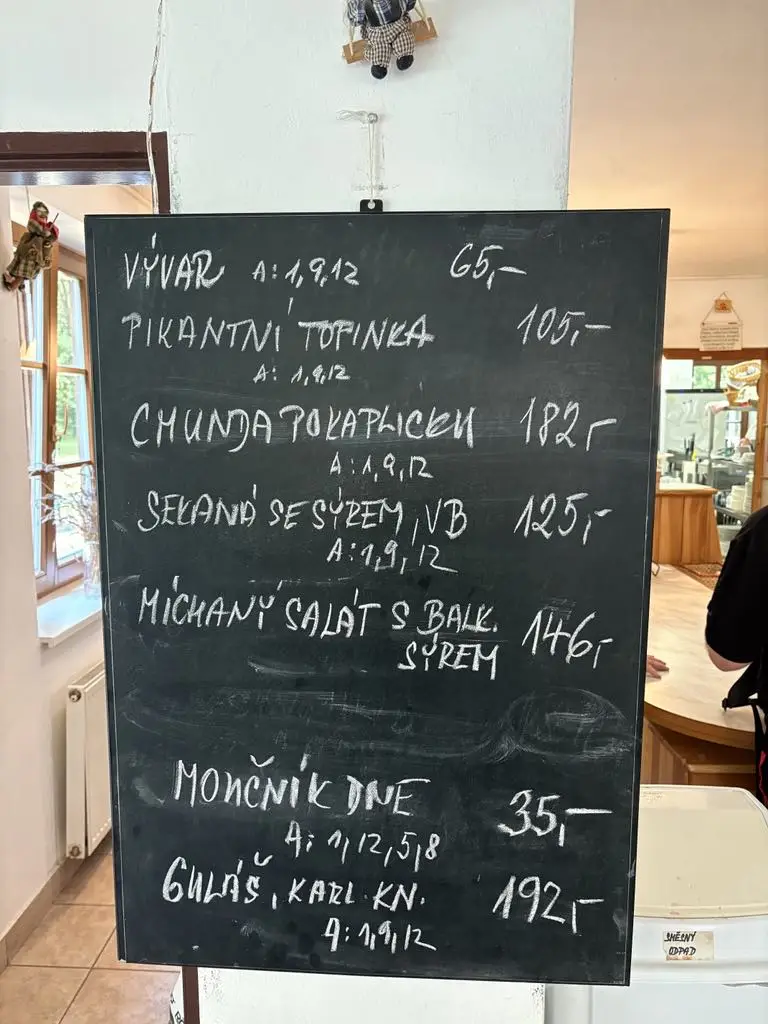 VÝVAR A: 1,9,12 65,-
PIKANTNÍ TOPINKA 105,-
A: 1,9,12
CMUNDA PO KAPLICKU 182,-
A: 1,9,12
SEKANÁ SE SÝREM, VB 125,-
A: 1,9,12
MÍCHANÝ SALÁT S BALK. 146,-
SÝREM
MOUČNÍK DNE 35,-
A: 1,12,5,8
GULÁŠ, KARL. KN. 192,-
A: 1,9,12
SMĚSNÝ
ODPAD